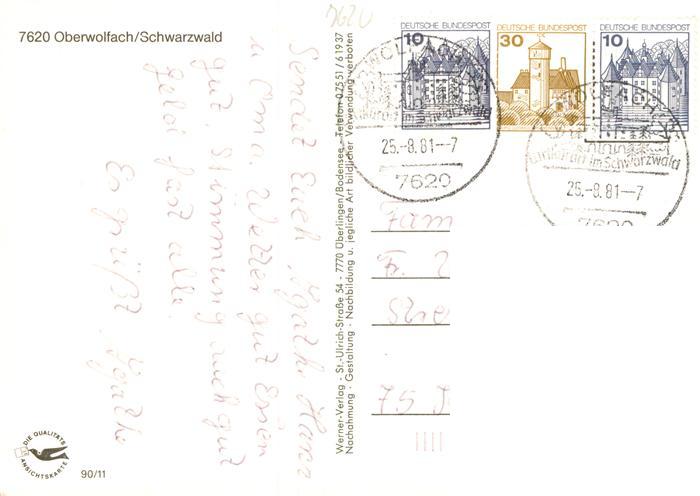 7620 Oberwolfach/Schwarzwald
7620
Sendet Euch
u Oma. Wetter gut Essen
gut, Stimmung auch gut
Geld fast alle.
Es grüßt
Werner-Verlag - St.-Ulrich-Straße 54 - 7770 Überlingen/Bodensee - Telefon 07551/61937
Nachahmung - Gestaltung - Nachbildung u. jegliche Art bildlicher Verwendung verboten
DEUTSCHE BUNDESPOST
10
DEUTSCHE BUNDESPOST
30
DEUTSCHE BUNDESPOST
10
im Schwarzwald
25.-8.81-7
7620
im Schwarzwald
25.-8.81-7
7620
Fam
Fr.
75
DIE QUALITÄTS
ANSICHTSKARTE
90/11